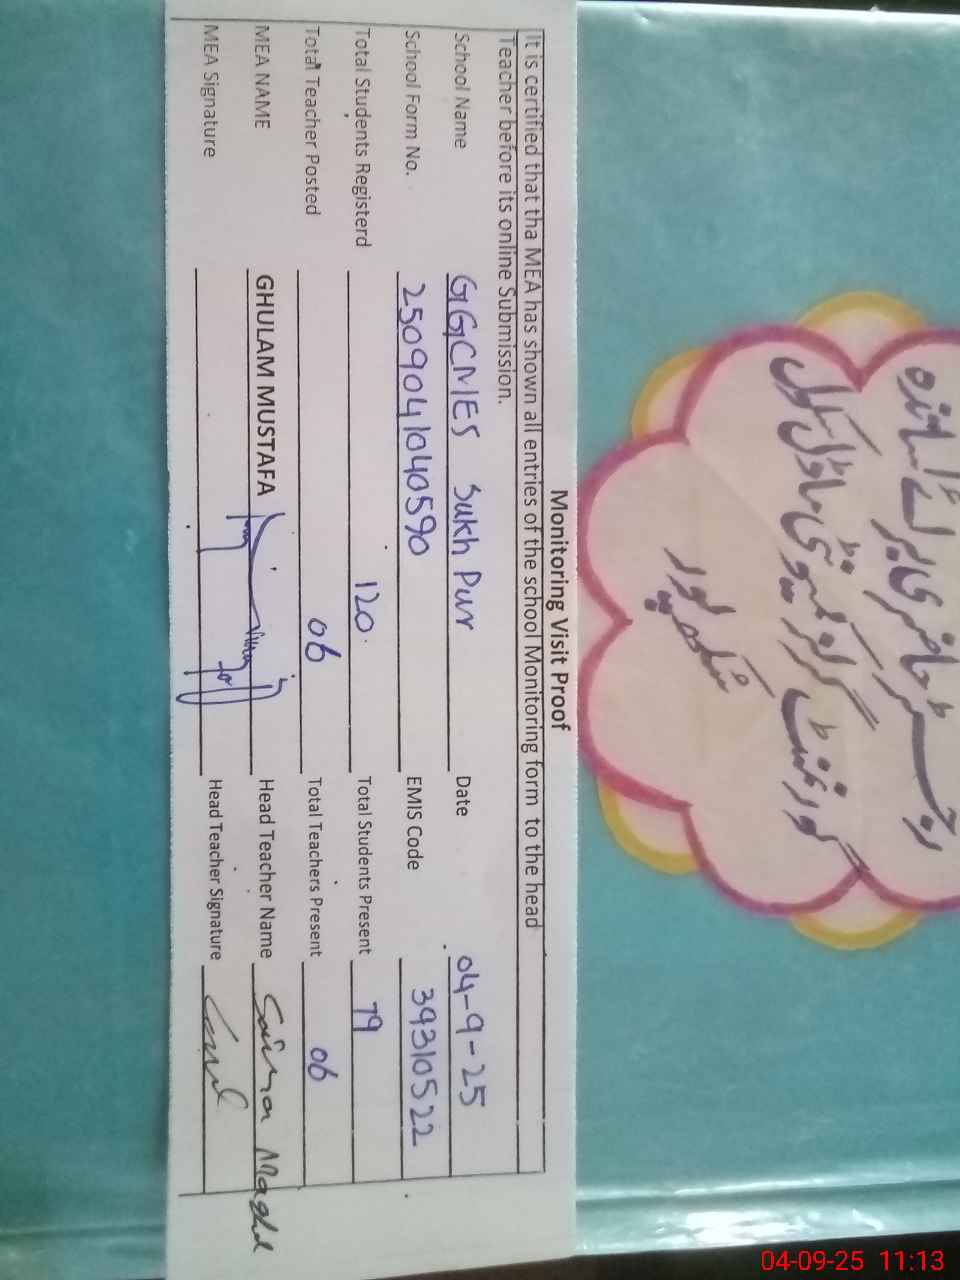 Monitoring Visit Proof
It is certified that tha MEA has shown all entries of the school Monitoring form to the head
Teacher before its online Submission.
School Name GGCMES Sukh Pur Date 04-9-25
School Form No. 2509041040590 EMIS Code 39310522
Total Students Registerd 120 Total Students Present 79
Total Teacher Posted 06 Total Teachers Present 06
MEA NAME GHULAM MUSTAFA Head Teacher Name Saima
MEA Signature Head Teacher Signature
رجسٹر حاضری برائے اساتذہ
گورنمنٹ گرلز کمیونٹی ماڈل سکول
سکھ پور
04-09-25 11:13